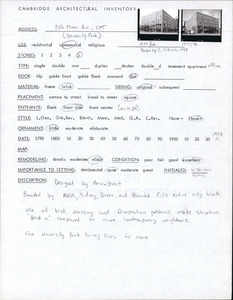 CAMBRIDGE ARCHITECTURAL INVENTORY
ADDRESS: 350 Mass. Ave., CPT
(University Park)
USE: residential commercial religious
STORIES: 1 2 3 4 5
TYPE: single double row duplex decker double d tenement apartment
ROOF: hip gable front gable flank mansard flat
MATERIAL: frame brick SIDING: original subsequent
PLACEMENT: narrow to street broad to street square
ENTRANCE: flank front side front center
STYLE:
ORNAMENT: little moderate elaborate
DATE: 1790 1800 10 20 30 40 50 60 70 80 90 1900 10 20 30
MAP:
REMODELING: drastic moderate minor CONDITION: poor fair good excellent
IMPORTANCE TO SETTING: detrimental none moderate great INITIALED:
DESCRIPTION: Designed by Arrowstreet
Bounded by Mass, Sidney, Green, and Blanche. Fills entire city block.
Use of brick, massing and fenestration patterns make structure
compared to more contemporary neighbors.
See University Park Survey Files for more